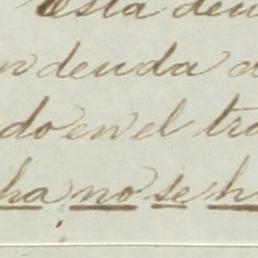 Esta deu
n deuda d
do en el tra
ha no se h